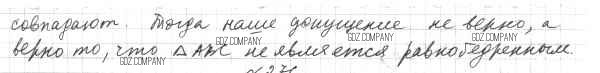 совпадают. Тогда наше допущение не верно, а
верно то, что △ABC не является равнобедренным
GDZ.COMPANY GDZ.COMPANY GDZ.COMPANY